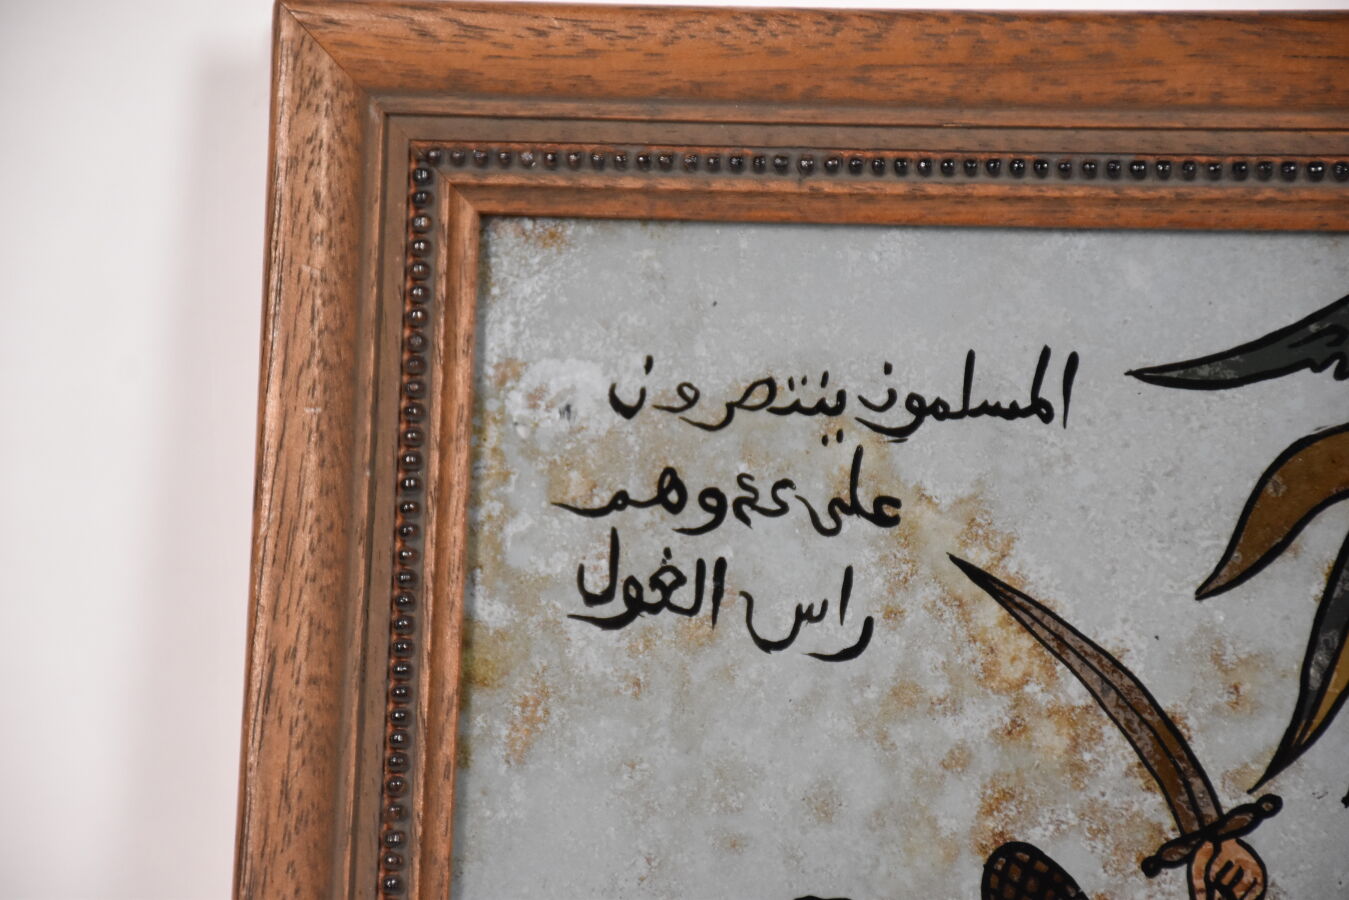 المسلمون ينتصرون
على عدوهم
راس الغول